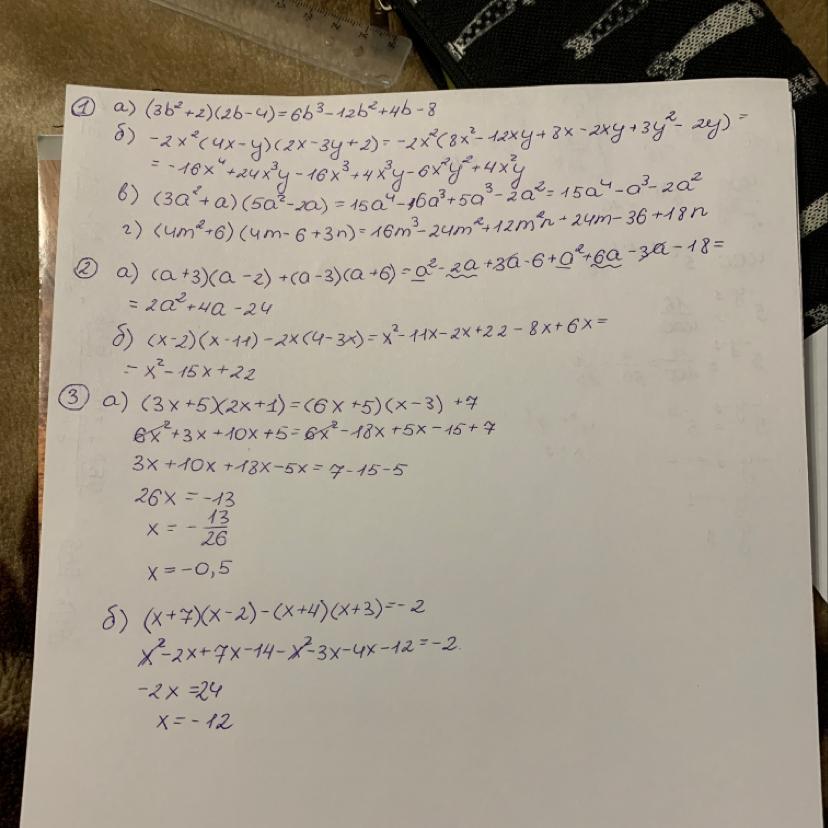 ① а) (3b²+2)(2b-4)=6b³-12b²+4b-8
б) -2x²(4x-y)(2x-3y+2)=-2x²(8x²-12xy+8x-2xy+3y²-2y)=
= -16x⁴+24x³y-16x³+4x³y-6x²y²+4x²y
в) (3a²+a)(5a²-2a)=15a⁴-6a³+5a³-2a²=15a⁴-a³-2a²
г) (4m²+6)(4m-6+3n)=16m³-24m²+12m²n+24m-36+18n
② а) (a+3)(a-2)+(a-3)(a+6)=a²-2a+3a-6+a²+6a-3a-18=
= 2a²+4a-24
б) (x-2)(x-11)-2x(4-3x)=x²-11x-2x+22-8x+6x=
= x²-15x+22
③ а) (3x+5)(2x+1)=(6x+5)(x-3)+7
6x²+3x+10x+5=6x²-18x+5x-15+7
3x+10x+18x-5x=7-15-5
26x=-13
x=-13/26
x=-0,5
б) (x+7)(x-2)-(x+4)(x+3)=-2
x²-2x+7x-14-x²-3x-4x-12=-2
-2x=24
x=-12